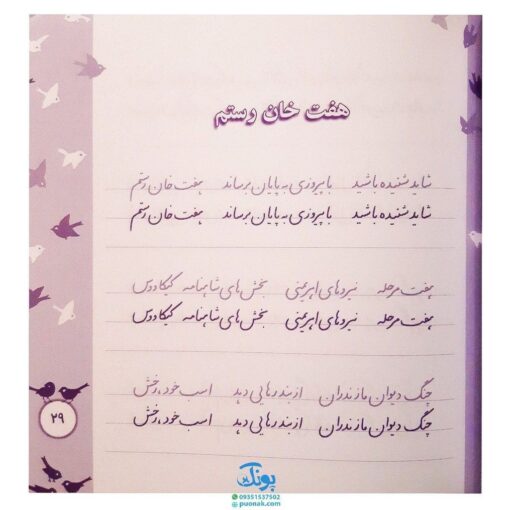 هفت خان رستم
شاید شنیده باشید با پیروزی به پایان برساند هفت خان رستم
شاید شنیده باشید با پیروزی به پایان برساند هفت خان رستم
هفت مرحله نیروهای اهریمنی بخش های شاهنامه کیکاووس
هفت مرحله نیروهای اهریمنی بخش های شاهنامه کیکاووس
چنگ دیوان مازندران از بند رهایی دهد اسب خود، رخش
چنگ دیوان مازندران از بند رهایی دهد اسب خود، رخش
۲۹
پونک
09351537502
puonak.com